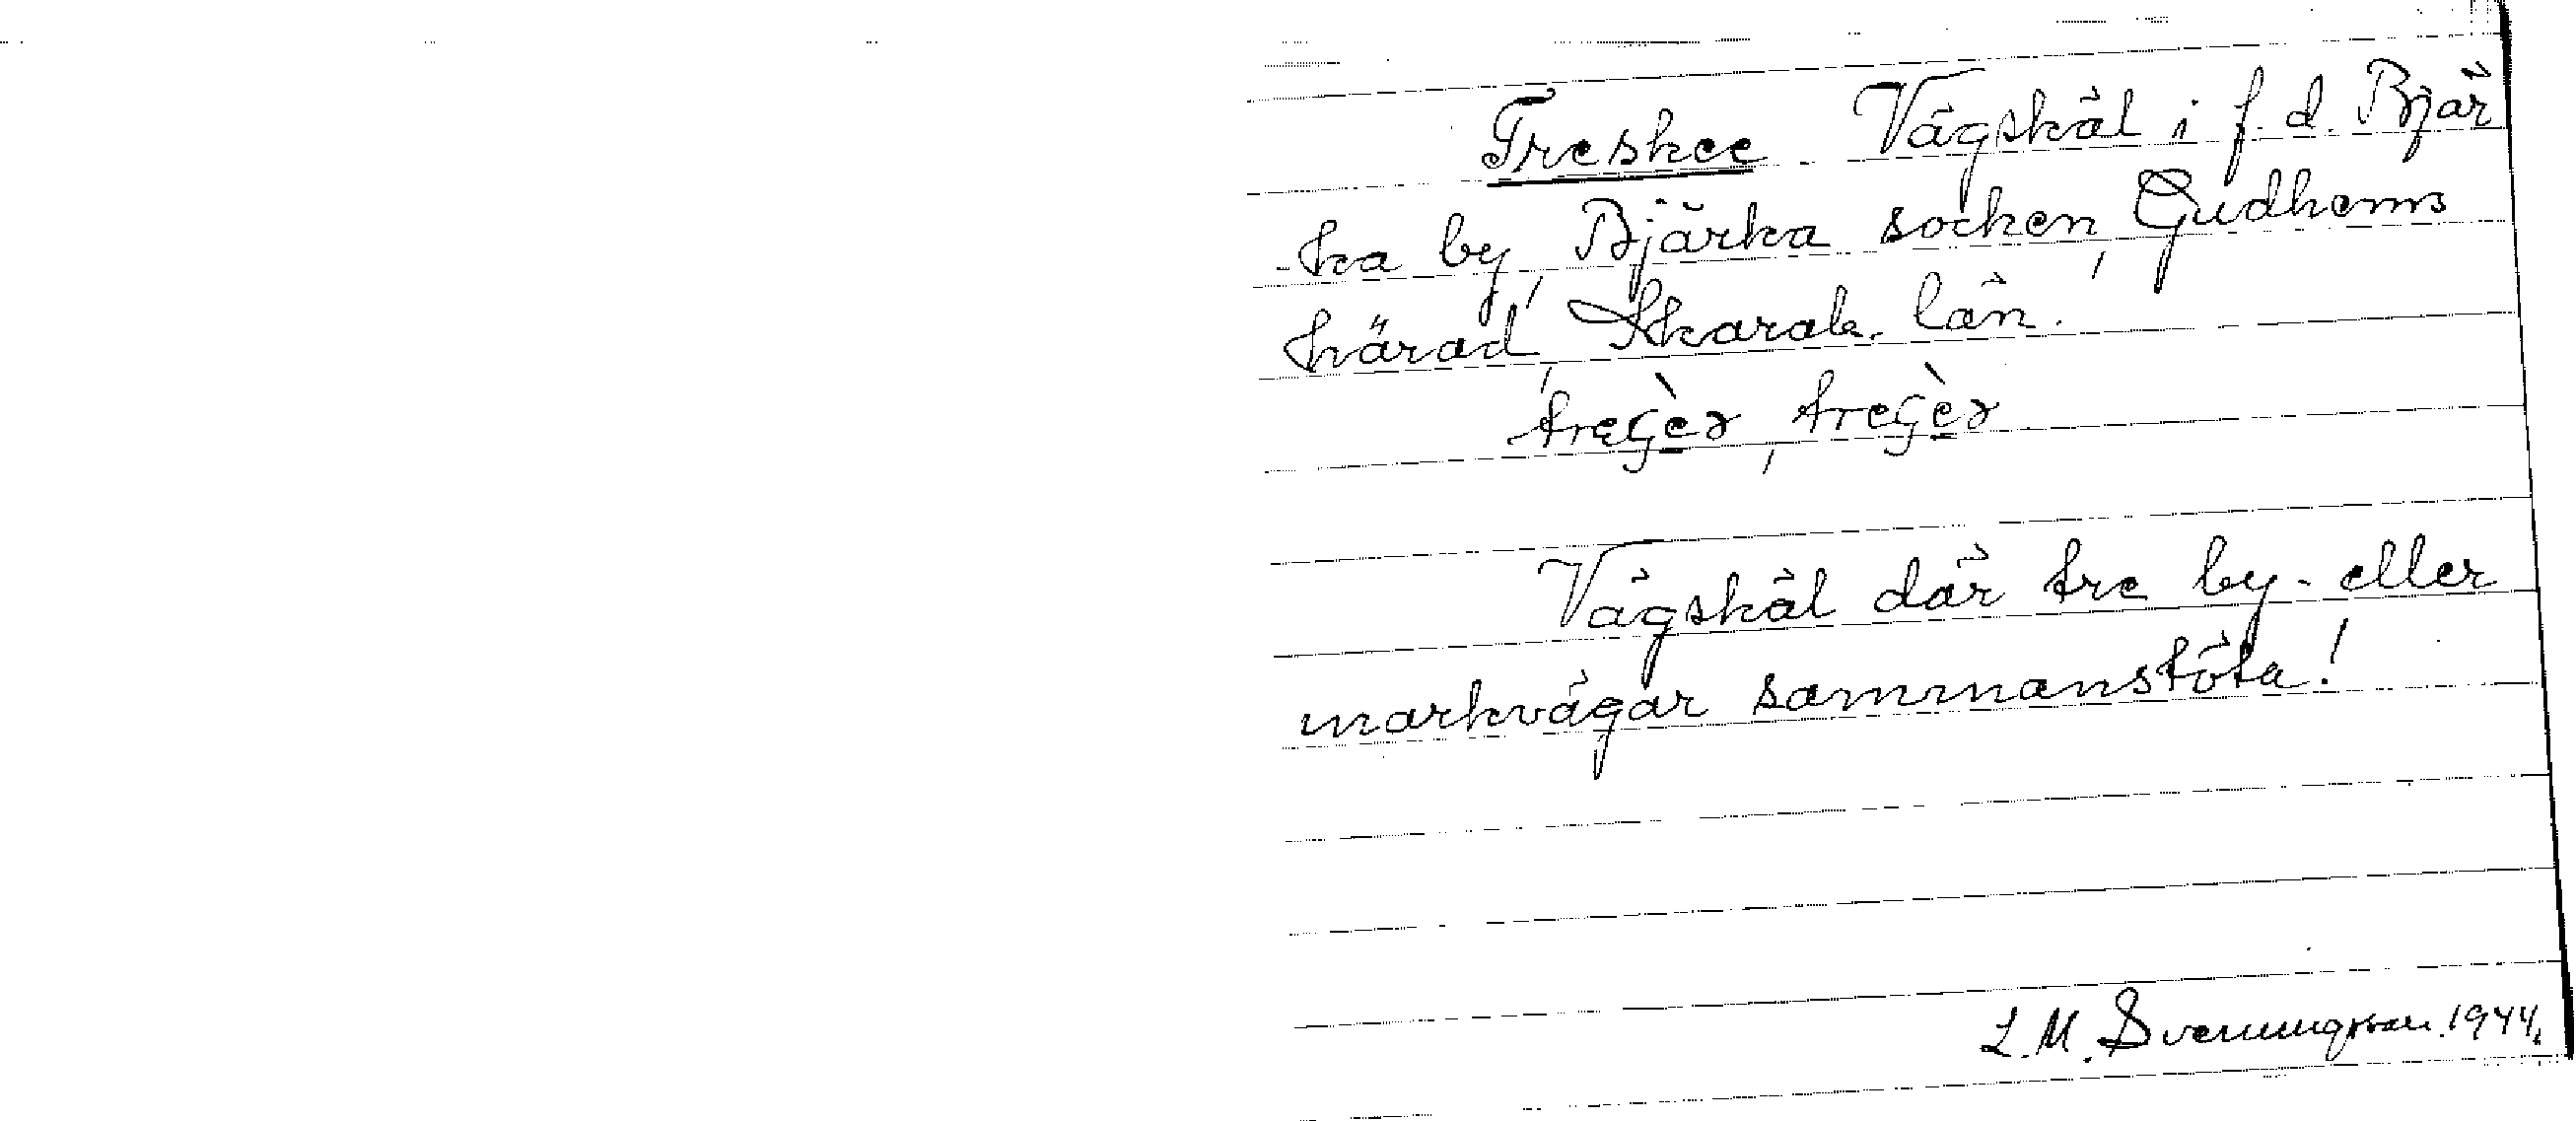 Treskee Vägskäl i f d. Bjär
ka by, Bjärka socken, Gudhems
härad, Skarab. län.
Vägskäl där tre by- eller
markvägar sammanstöta!
L. M. Svenungsson 1944.